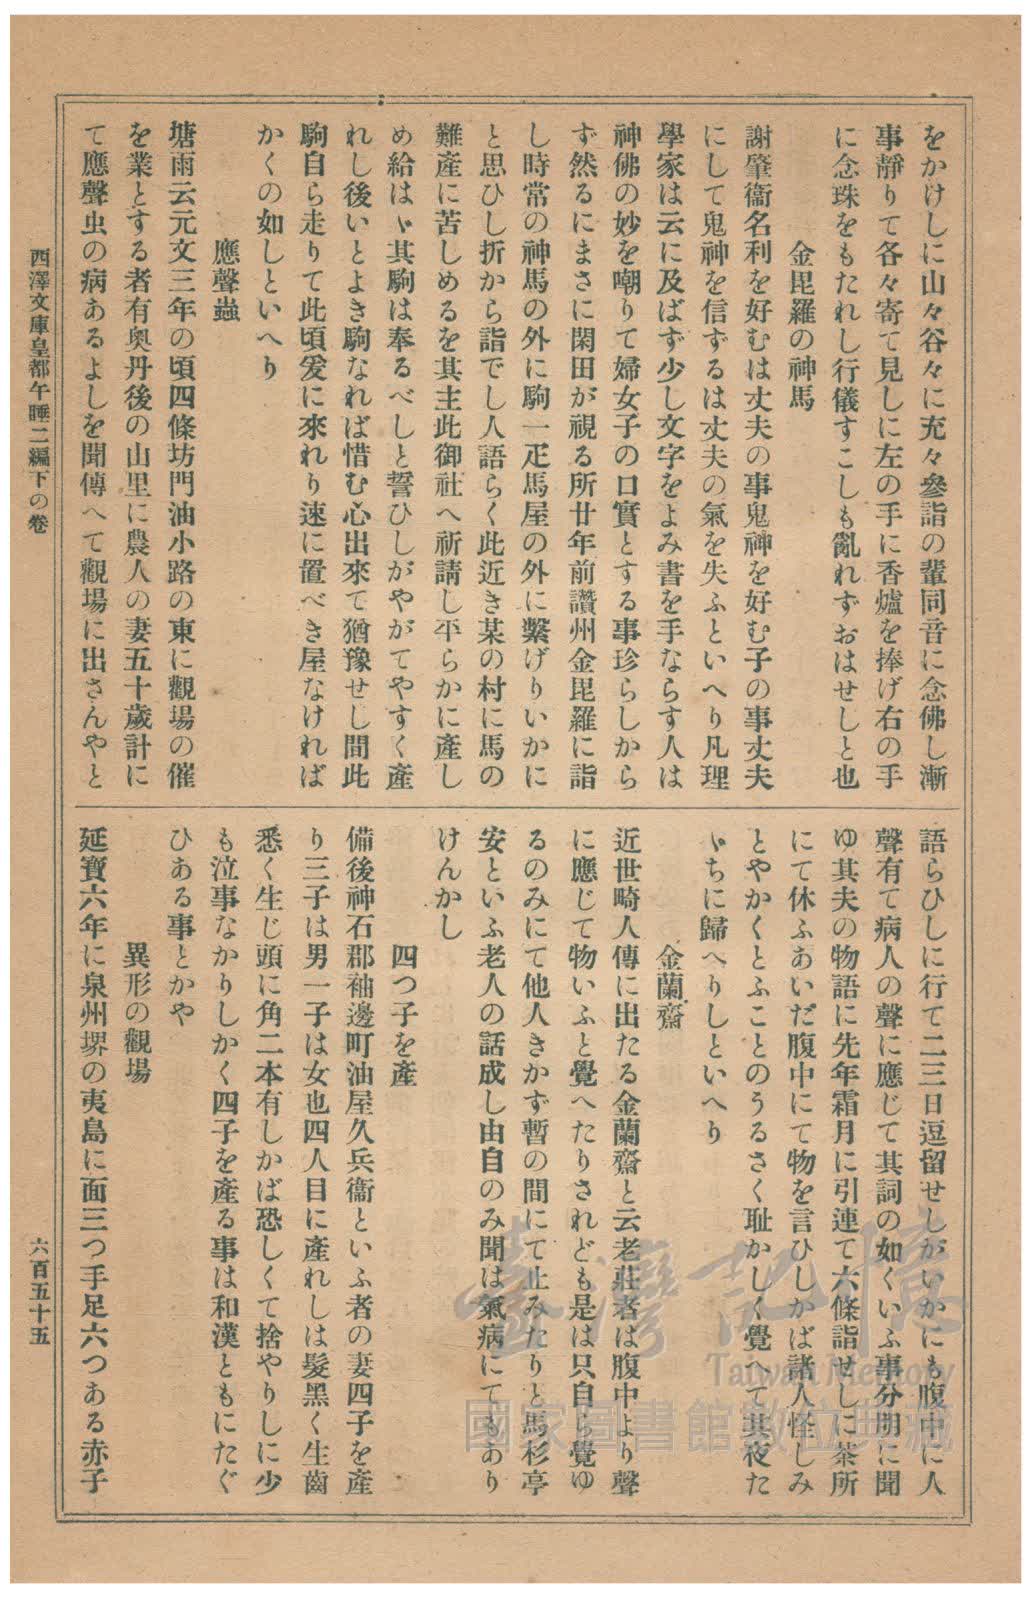 をかけしに山々谷々に充々參詣の輩同音に念佛し漸
事靜りて各々寄て見しに左の手に香爐を捧げ右の手
に念珠をもたれし行儀すこしも亂れずおはせしと也
金毘羅の神馬
謝肇衞名利を好むは丈夫の事鬼神を好む子の事丈夫
にして鬼神を信ずるは丈夫の氣を失ふといへり凡理
學家は云に及ばず少し文字をよみ書を手ならす人は
神佛の妙を嘲りて婦女子の口實とする事珍らしから
ず然るにまさに閑田が視る所廿年前讚州金毘羅に詣
し時常の神馬の外に駒一疋馬屋の外に繫げりいかに
と思ひし折から詣でし人語らく此近き某の村に馬の
難產に苦しめるを其主此御社へ祈請し平らかに產し
め給はゞ其駒は奉るべしと誓ひしがやがてやすく產
れし後いとよき駒なれば惜む心出來て猶豫せし間此
駒自ら走りて此頃爰に來れり速に置べき屋なければ
かくの如しといへり
應聲蟲
塘雨云元文三年の頃四條坊門油小路の東に觀場の催
を業とする者有奥丹後の山里に農人の妻五十歲計に
て應聲虫の病あるよしを聞傳へて觀場に出さんやと
語らひしに行て二三日逗留せしがいかにも腹中に人
聲有て病人の聲に應じて其詞の如くいふ事分明に聞
ゆ其夫の物語に先年霜月に引連て六條詣せしに茶所
にて休ふあいだ腹中にて物を言ひしかば諸人怪しみ
とやかくとふことのうるさく耻かしく覺へて其夜た
ゞちに歸へりしといへり
金蘭齋
近世畸人傳に出たる金蘭齋と云老莊者は腹中より聲
に應じて物いふと覺へたりされども是は只自ら覺ゆ
るのみにて他人きかず暫の間にて止みたりと馬杉亭
安といふ老人の話成し由自のみ聞は氣病にてもあり
けんかし
四つ子を產
備後神石郡袖邊町油屋久兵衞といふ者の妻四子を產
り三子は男一子は女也四人目に產れしは髮黑く生齒
悉く生じ頭に角二本有しかば恐しくて捨やりしに少
も泣事なかりしかく四子を產る事は和漢ともにたぐ
ひある事とかや
異形の觀場
延寶六年に泉州堺の夷島に面三つ手足六つある赤子
西澤文庫皇都午睡二編下の卷
六百五十五
臺灣記憶
Taiwan Memory
國家圖書館數位典藏